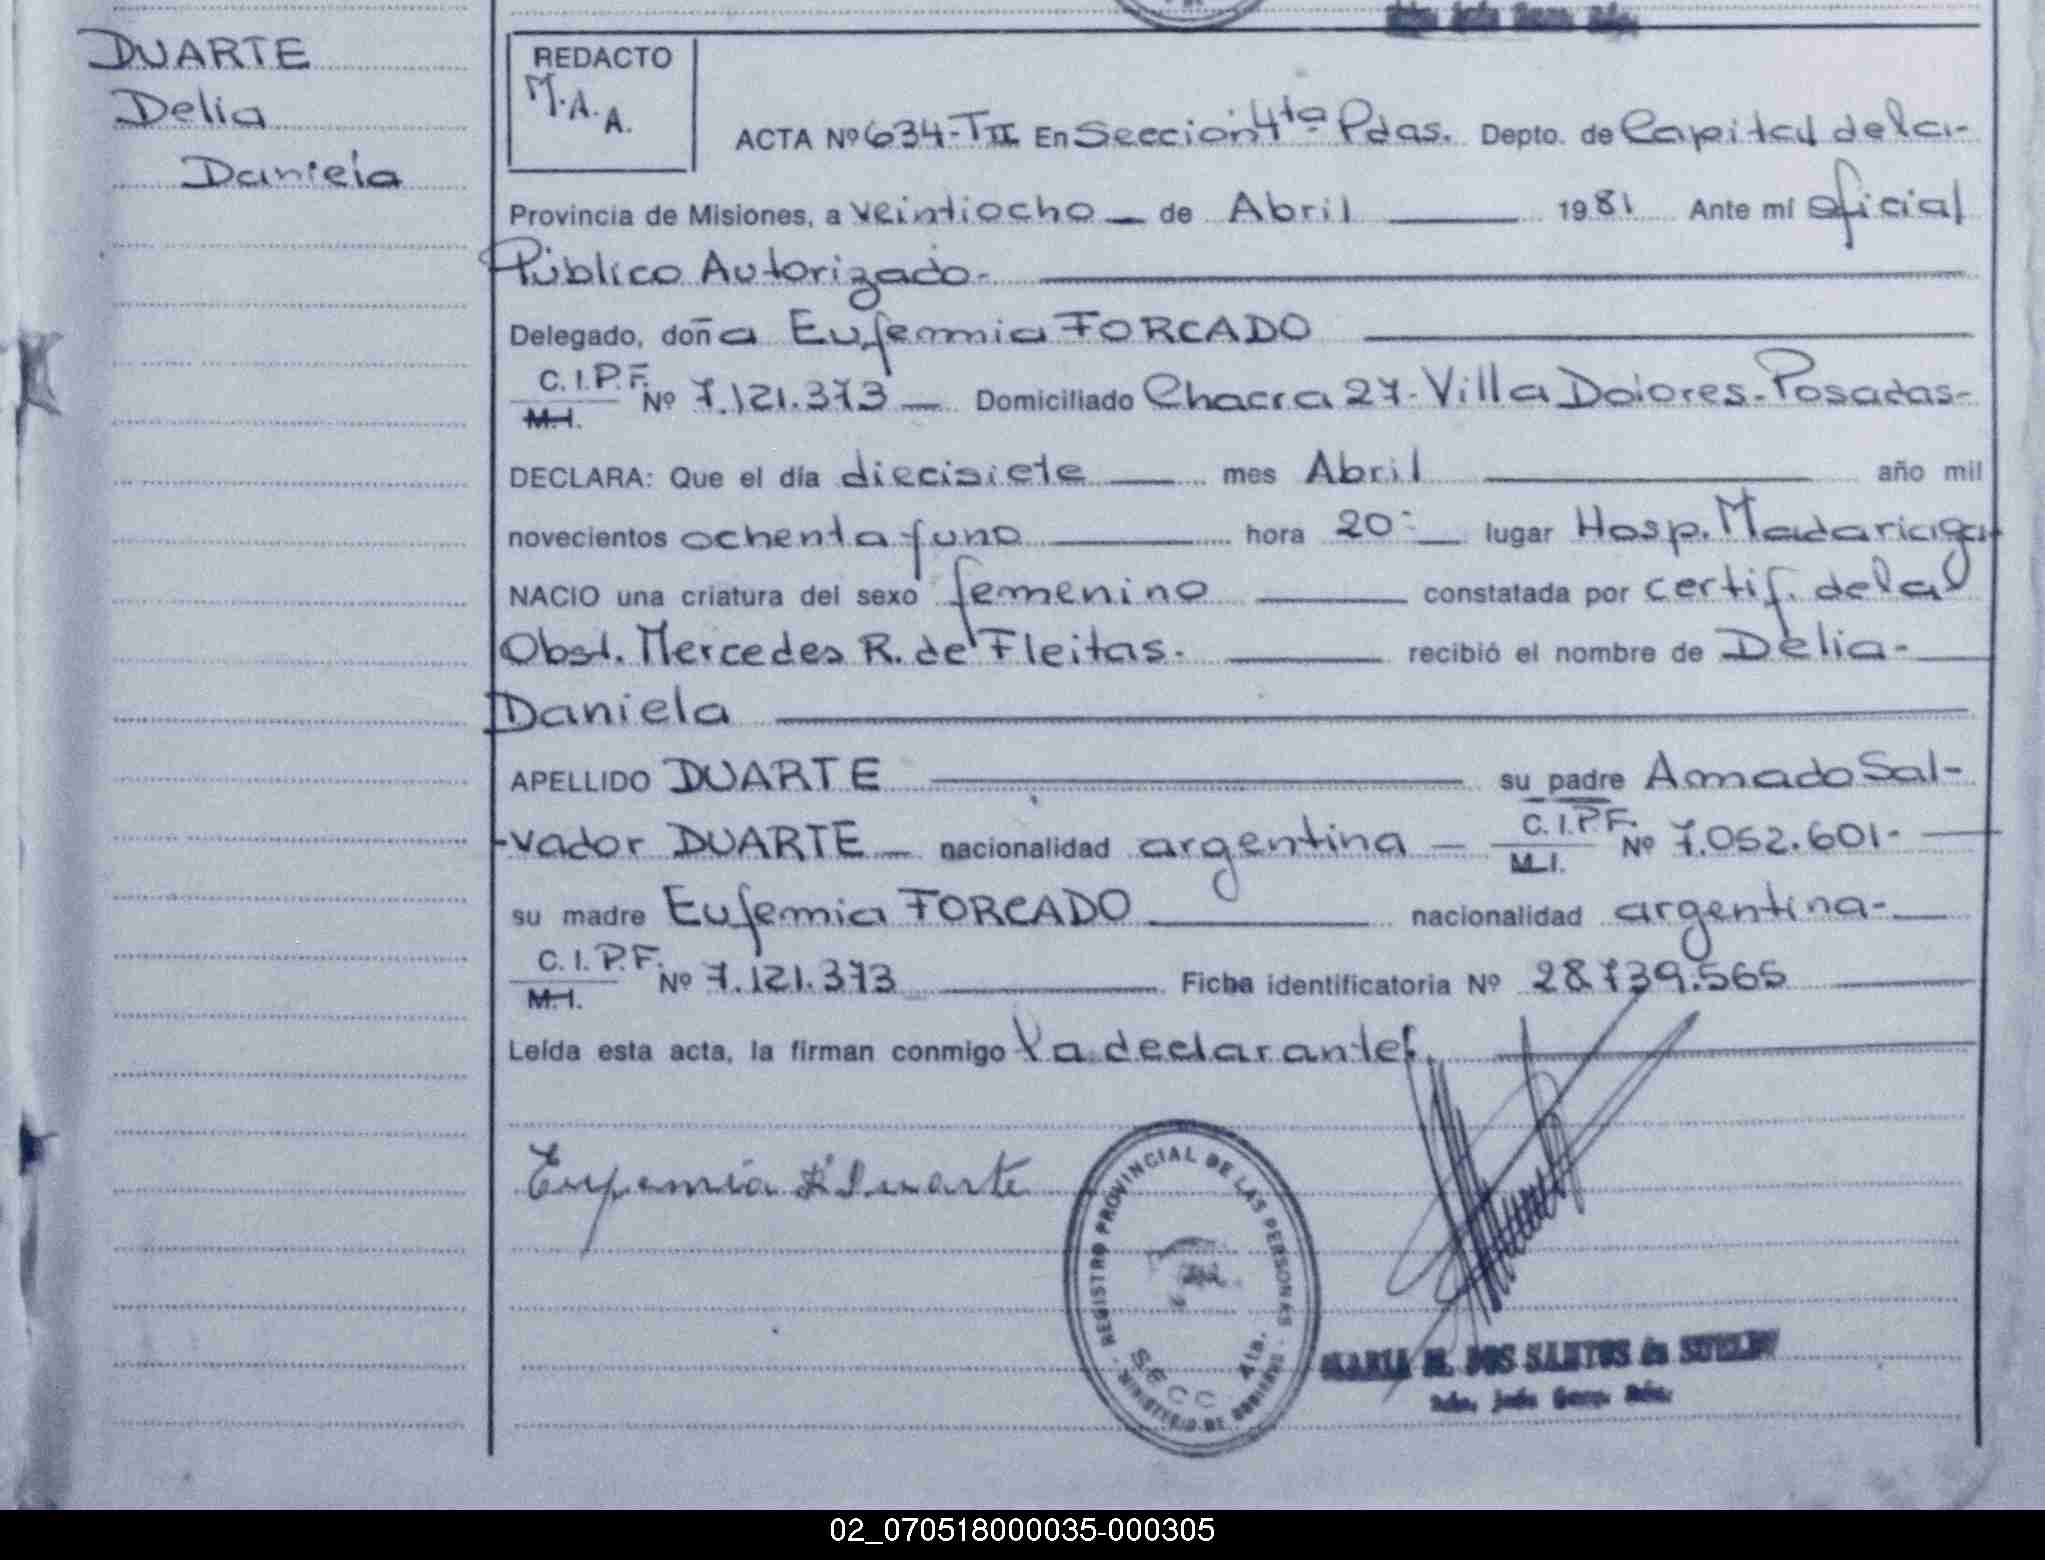 DUARTE
Delia
Daniela
REDACTO
M.A.A.
ACTA Nº 634-TII En Sección 4ta Pdas. Depto. de Capital de la-
Provincia de Misiones, a veintiocho de Abril 1981 Ante mí oficial
Público Autorizado-
Delegado, doña Eufemia FORCADO
C.I.P.F.
M.I. Nº 7.121.373 Domiciliado Chacra 27-Villa Dolores-Posadas-
DECLARA: Que el día diecisiete mes Abril año mil
novecientos ochenta y uno hora 20- lugar Hosp. Madariaga
NACIO una criatura del sexo femenino constatada por certif. de la
Obst. Mercedes R. de Fleitas. recibió el nombre de Delia-
Daniela
APELLIDO DUARTE su padre Amado Sal-
-vador DUARTE nacionalidad argentina C.I.P.F.
M.I. Nº 7.052.601-
su madre Eufemia FORCADO nacionalidad argentina-
C.I.P.F.
M.I. Nº 7.121.373 Ficha identificatoria Nº 28739.565
Leída esta acta, la firman conmigo la declarante.
Eufemia F. Duarte
REGISTRO PROVINCIAL DE LAS PERSONAS - MINISTERIO DE GOBIERNO -
SECC 4ta.
MARIA M. DOS SANTOS de
02_070518000035-000305